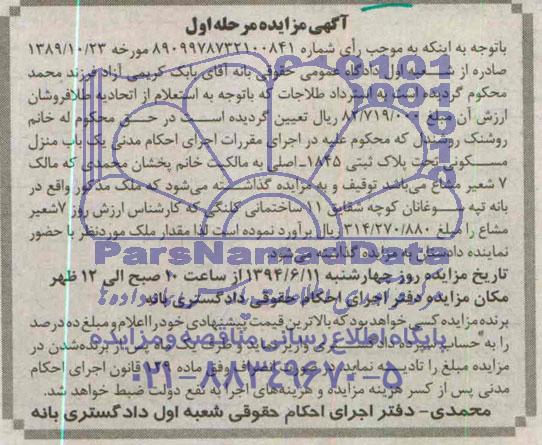 آگهی مزایده مرحله اول
باتوجه به اینکه به موجب رأی شماره ۸۹۰۹۹۷۸۷۳۲۱۰۰۸۴۱ مورخه ۱۳۸۹/۱۰/۲۳
صادره از شعبه اول دادگاه عمومی حقوقی بانه آقای بابک کریمی آزاد فرزند محمد
محکوم گردیده است به استرداد طلاجات که باتوجه به استعلام از اتحادیه طلافروشان
ارزش آن مبلغ ۸۲/۷۱۹/۰۰۰ ریال تعیین گردیده است در حق محکوم له خانم
روشنک روشندل که محکوم علیه در اجرای مقررات اجرای احکام مدنی یک باب منزل
مسکونی تحت پلاک ثبتی ۱۸۴۵-اصلی به مالکیت خانم پخشان محمدی که مالک
۷ شعیر مشاع می‌باشد توقیف و به مزایده گذاشته می‌شود که ملک مذکور واقع در
بانه تپه سوغانان کوچه شقایق ۱۱ ساختمانی کلنگی که کارشناس ارزش روز ۷شعیر
مشاع را مبلغ ۳۱۴/۲۷۰/۸۸۰ ریال برآورد نموده است لذا مقدار ملک موردنظر با حضور
نماینده دادستان به مزایده گذاشته می‌شود.
تاریخ مزایده روز چهارشنبه ۱۳۹۴/۶/۱۱ از ساعت ۱۰ صبح الی ۱۲ ظهر
مکان مزایده دفتر اجرای احکام حقوقی دادگستری بانه
برنده مزایده کسی خواهد بود که بالاترین قیمت پیشنهادی خود را اعلام و مبلغ ده درصد
را به حساب سپرده دادگستری واریز نماید و ظرف یک ماه پس از برنده‌شدن در
مزایده مبلغ را تادیه نماید در صورت انصراف وفق ماده ۱۲۹ قانون اجرای احکام
مدنی پس از کسر هزینه مزایده و هزینه‌های اجرا به نفع دولت ضبط خواهد شد.
محمدی- دفتر اجرای احکام حقوقی شعبه اول دادگستری بانه
ParsNamadData
پایگاه اطلاع رسانی مناقصه و مزایده
۰۲۱-۸۸۳۴۹۶۷۰-۵